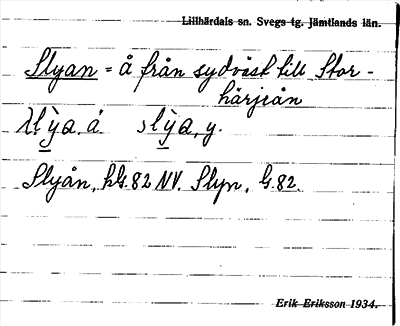 Lillhärdals sn. Svegs tg. Jämtlands län.
Slyan = å från sydväst till Stor-
härjeån
slỳa, y.
Slyån, hG. 82 NV. Slyn, G. 82.
Erik Eriksson 1934.